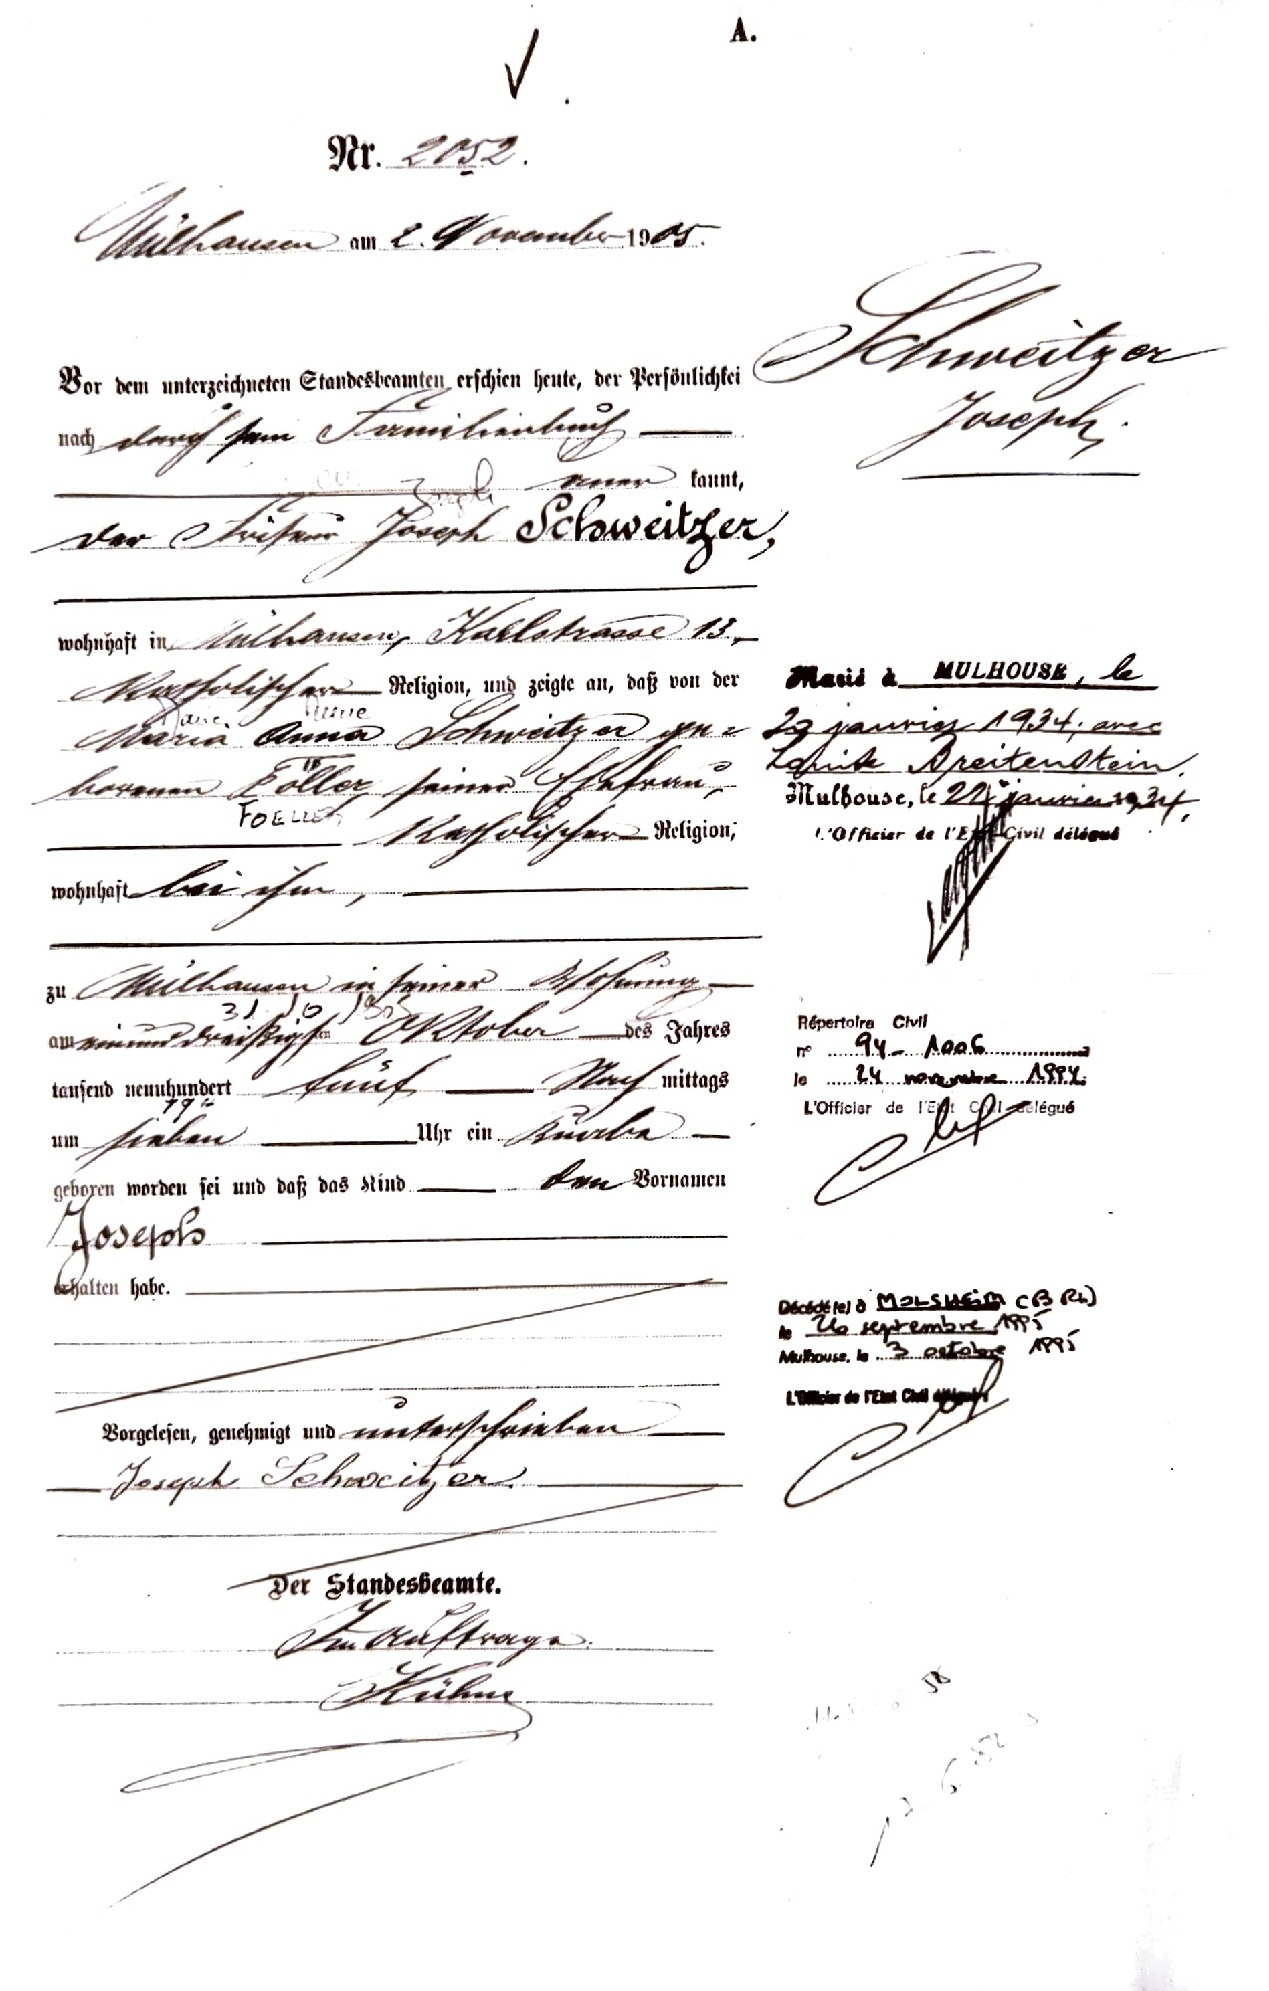 A.
Nr. 2052.
Mülhausen am 2. November 1905.
Schweitzer
Joseph.
Vor dem unterzeichneten Standesbeamten erschien heute, der Persönlichkei
nach durch sein Familienbuch
aner kannt,
der Friseur Joseph Schweitzer,
wohnhaft in Mülhausen, Karlstrasse 13,
katholischer Religion, und zeigte an, daß von der
Maria Anna Schweitzer ge=
borenen Föller, seiner Ehefrau,
FOELLER
katholischer Religion,
wohnhaft bei ihm,
zu Mülhausen in seiner Wohnung
31 10 1905
am einunddreißigsten Oktober des Jahres
tausend neunhundert fünf Nach mittags
19h
um sieben Uhr ein Knabe
geboren worden sei und daß das Kind den Vornamen
Joseph
erhalten habe.
Vorgelesen, genehmigt und unterschrieben
Joseph Schweitzer.
Der Standesbeamte.
Im Auftrage.
Kühne
Marié à MULHOUSE, le
22 janvier 1934, avec
Louise Breitenstein.
Mulhouse, le 22 janvier 1934,
L'Officier de l'Etat Civil délégué
Répertoire Civil
n° 94-1006
le 24 novembre 1994.
L'Officier de l'Etat Civil délégué
Décédé(e) à MOLSHEIM (B Rh)
le 26 septembre 1995
Mulhouse, le 3 octobre 1995
L'Officier de l'Etat Civil délégué